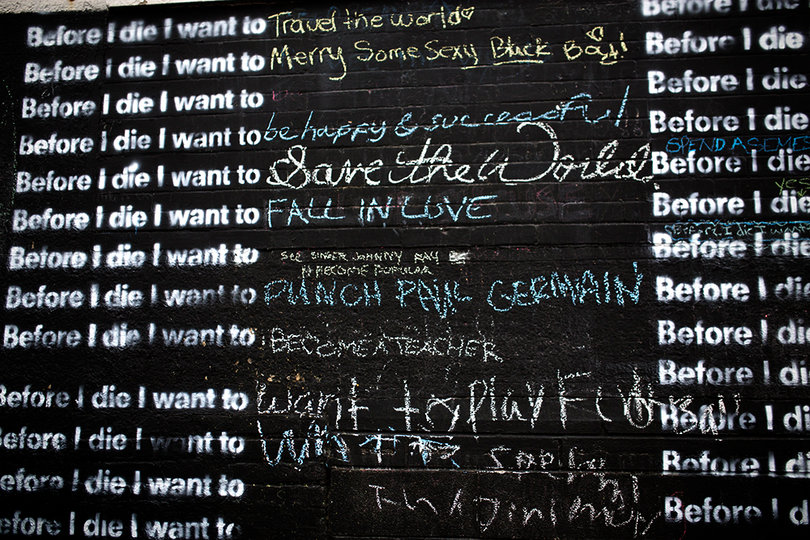 Before I die I want to Travel the world
Before I die I want to Merry Some Sexy Black Boy!
Before I die I want to
Before I die I want to be happy & successful
Before I die I want to Save the World
Before I die I want to FALL IN LOVE
Before I die I want to SEE SINGER JOHNNY RAY
BECOME POPULAR
Before I die I want to PUNCH PAUL GERMAIN
Before I die I want to BECOME A TEACHER
Before I die I want to want to play
Before I die I want to
Before I die I want to
Before I die I want to
Before I die
Before I die
Before I die
Before I die
SPEND A
Before I die
Before I die
BEFORE I DIE I WANT
Before I die
Before I di
Before I di
Before I d
Before I d
Before I d